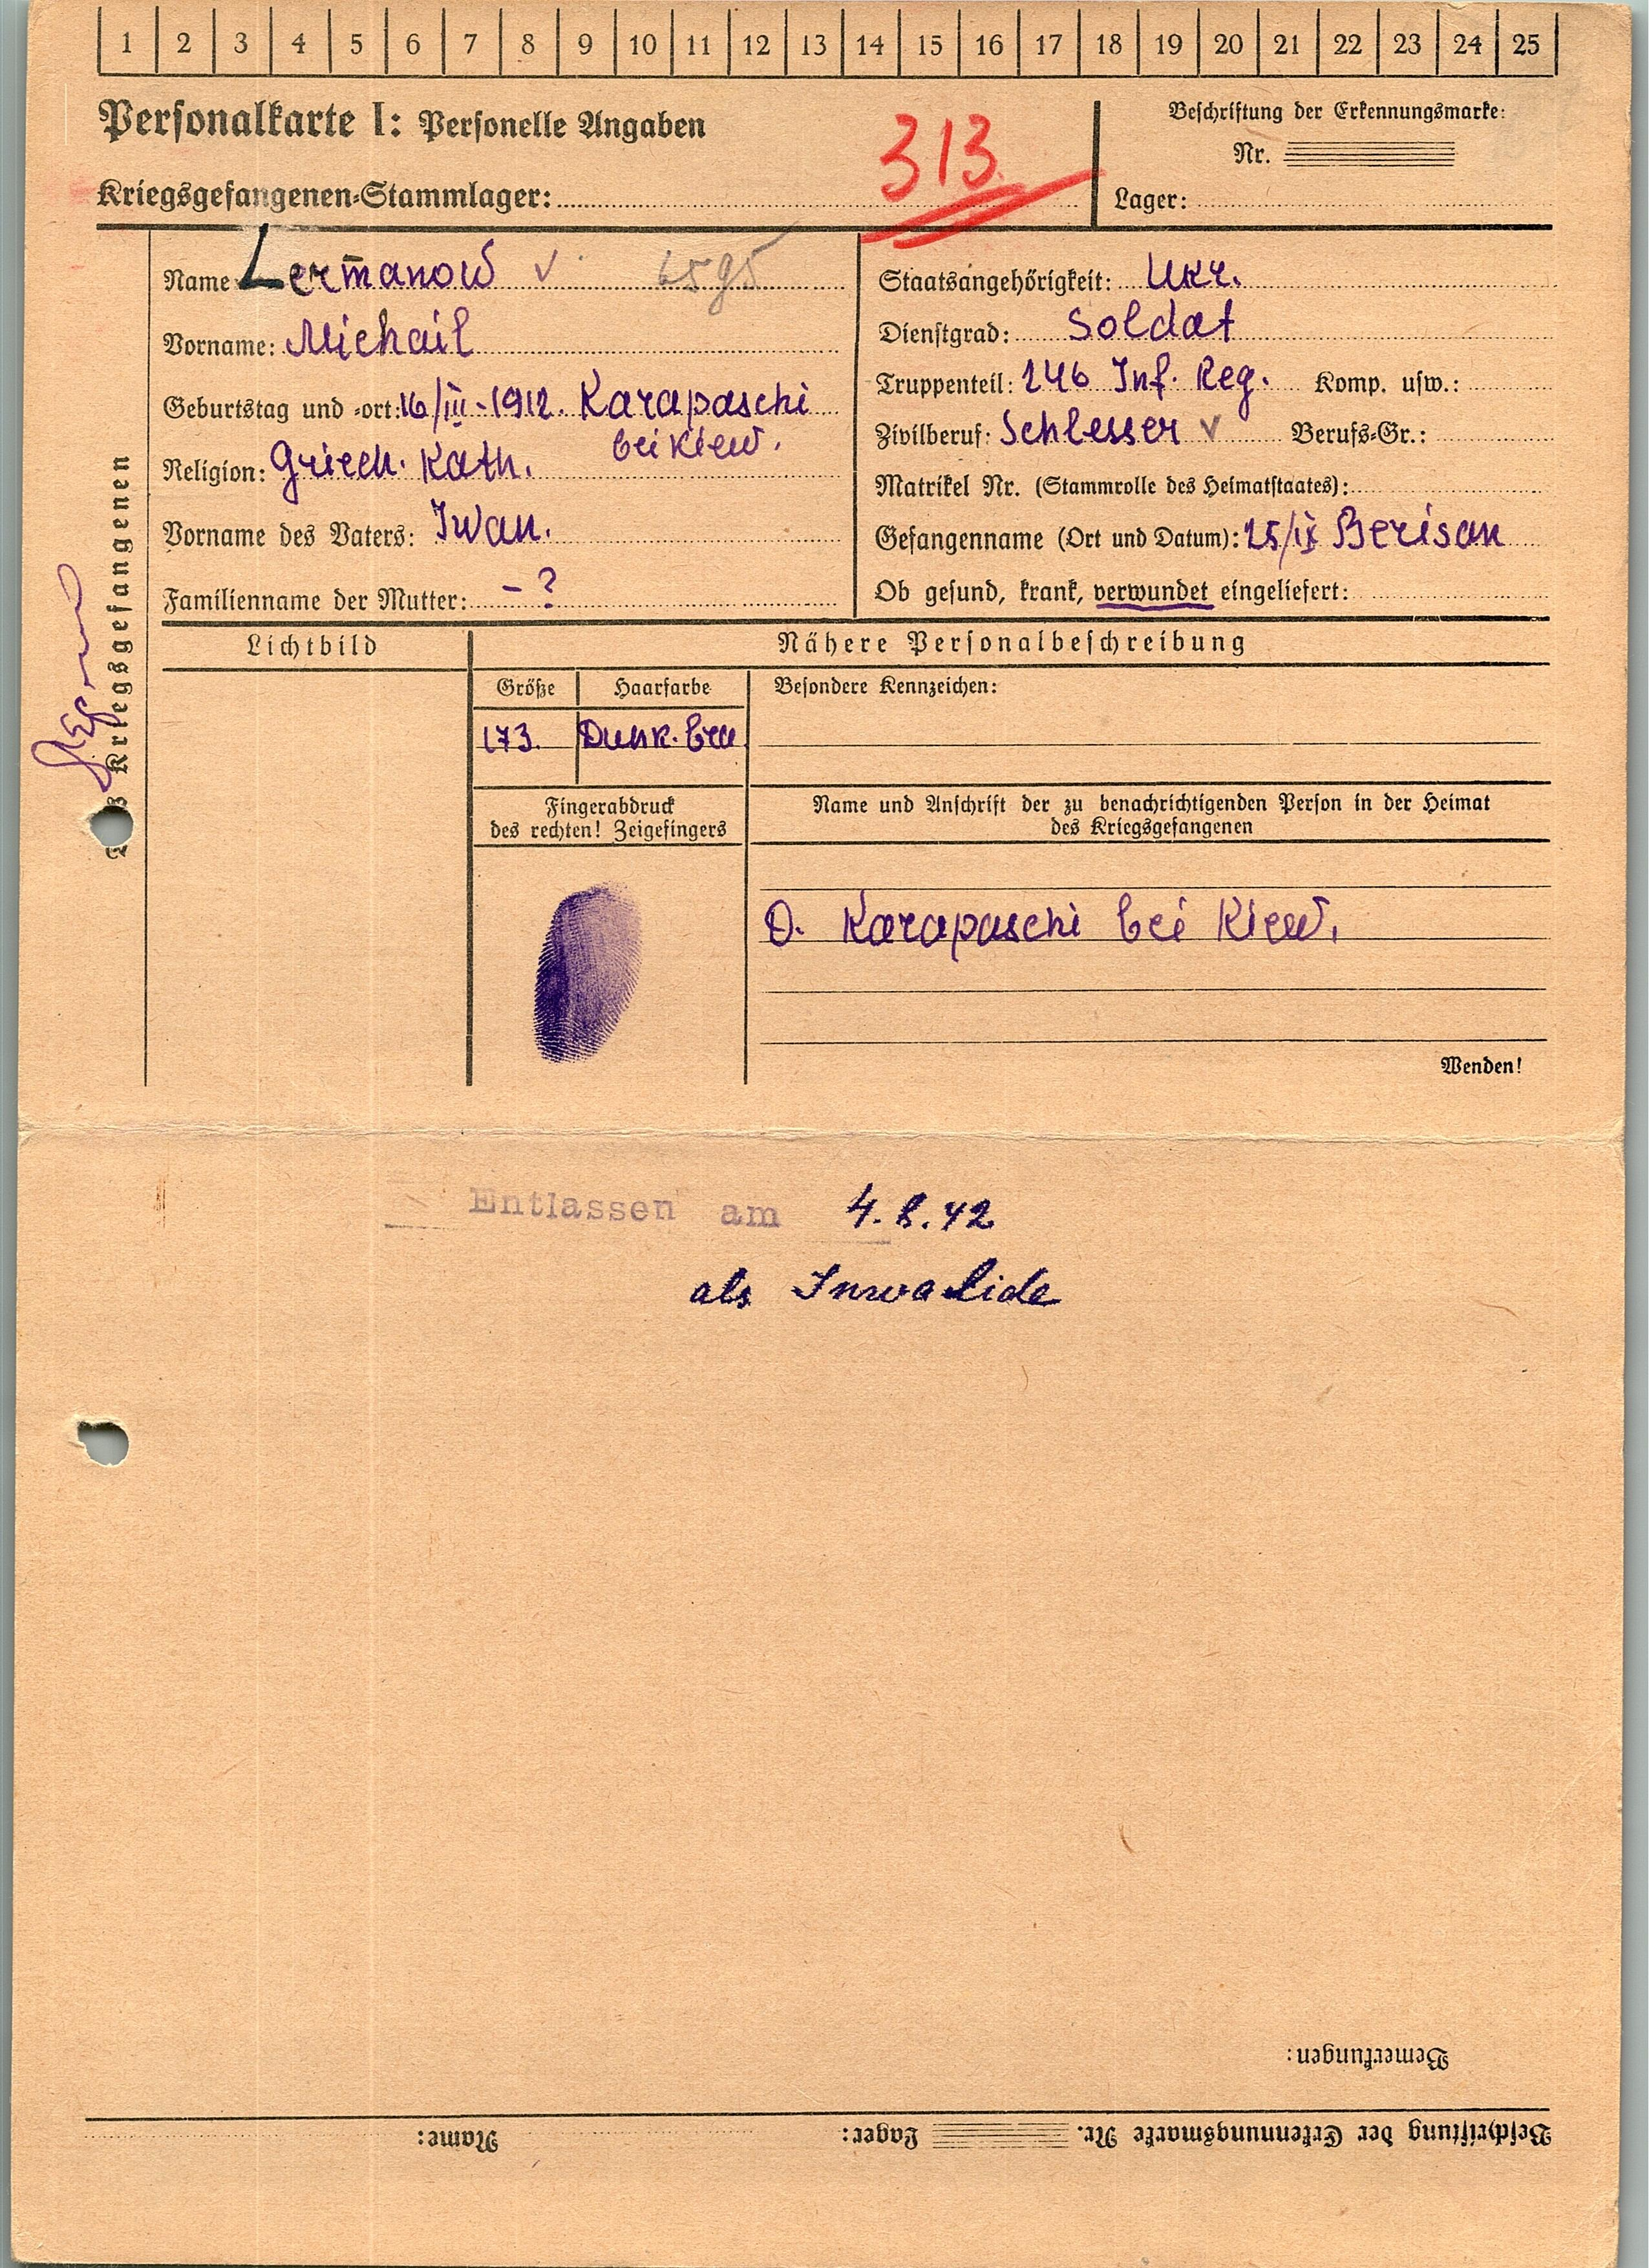 1 2 3 4 5 6 7 8 9 10 11 12 13 14 15 16 17 18 19 20 21 22 23 24 25
Personalkarte I: Personelle Angaben
313
Beschriftung der Erkennungsmarke:
Nr.
Kriegsgefangenen-Stammlager:
Lager:
Name: Lermanow v 6595
Vorname: Michail
Geburtstag und -ort: 16/III-1912. Karapaschi
bei Kiew.
Religion: Griech. Kath.
Vorname des Vaters: Iwan.
Familienname der Mutter: - ?
Staatsangehörigkeit: Ukr.
Dienstgrad: Soldat
Truppenteil: 246 Inf. Reg. Komp. usw.:
Zivilberuf: Schlesser v Berufs-Gr.:
Matrikel Nr. (Stammrolle des Heimatstaates):
Gefangenname (Ort und Datum): 25/IX Berisan
Ob gesund, krank, verwundet eingeliefert:
Kriegsgefangenen
Lichtbild
Nähere Personalbeschreibung
Größe
Haarfarbe
Besondere Kennzeichen:
173.
Dunk. brau
Fingerabdruck
des rechten! Zeigefingers
Name und Anschrift der zu benachrichtigenden Person in der Heimat
des Kriegsgefangenen
D. Karapaschi bei Kiew.
Wenden!
Entlassen am 4.8.42
als Invalide
Bemerkungen:
Beschriftung der Erkennungsmarke Nr. Lager: Name: